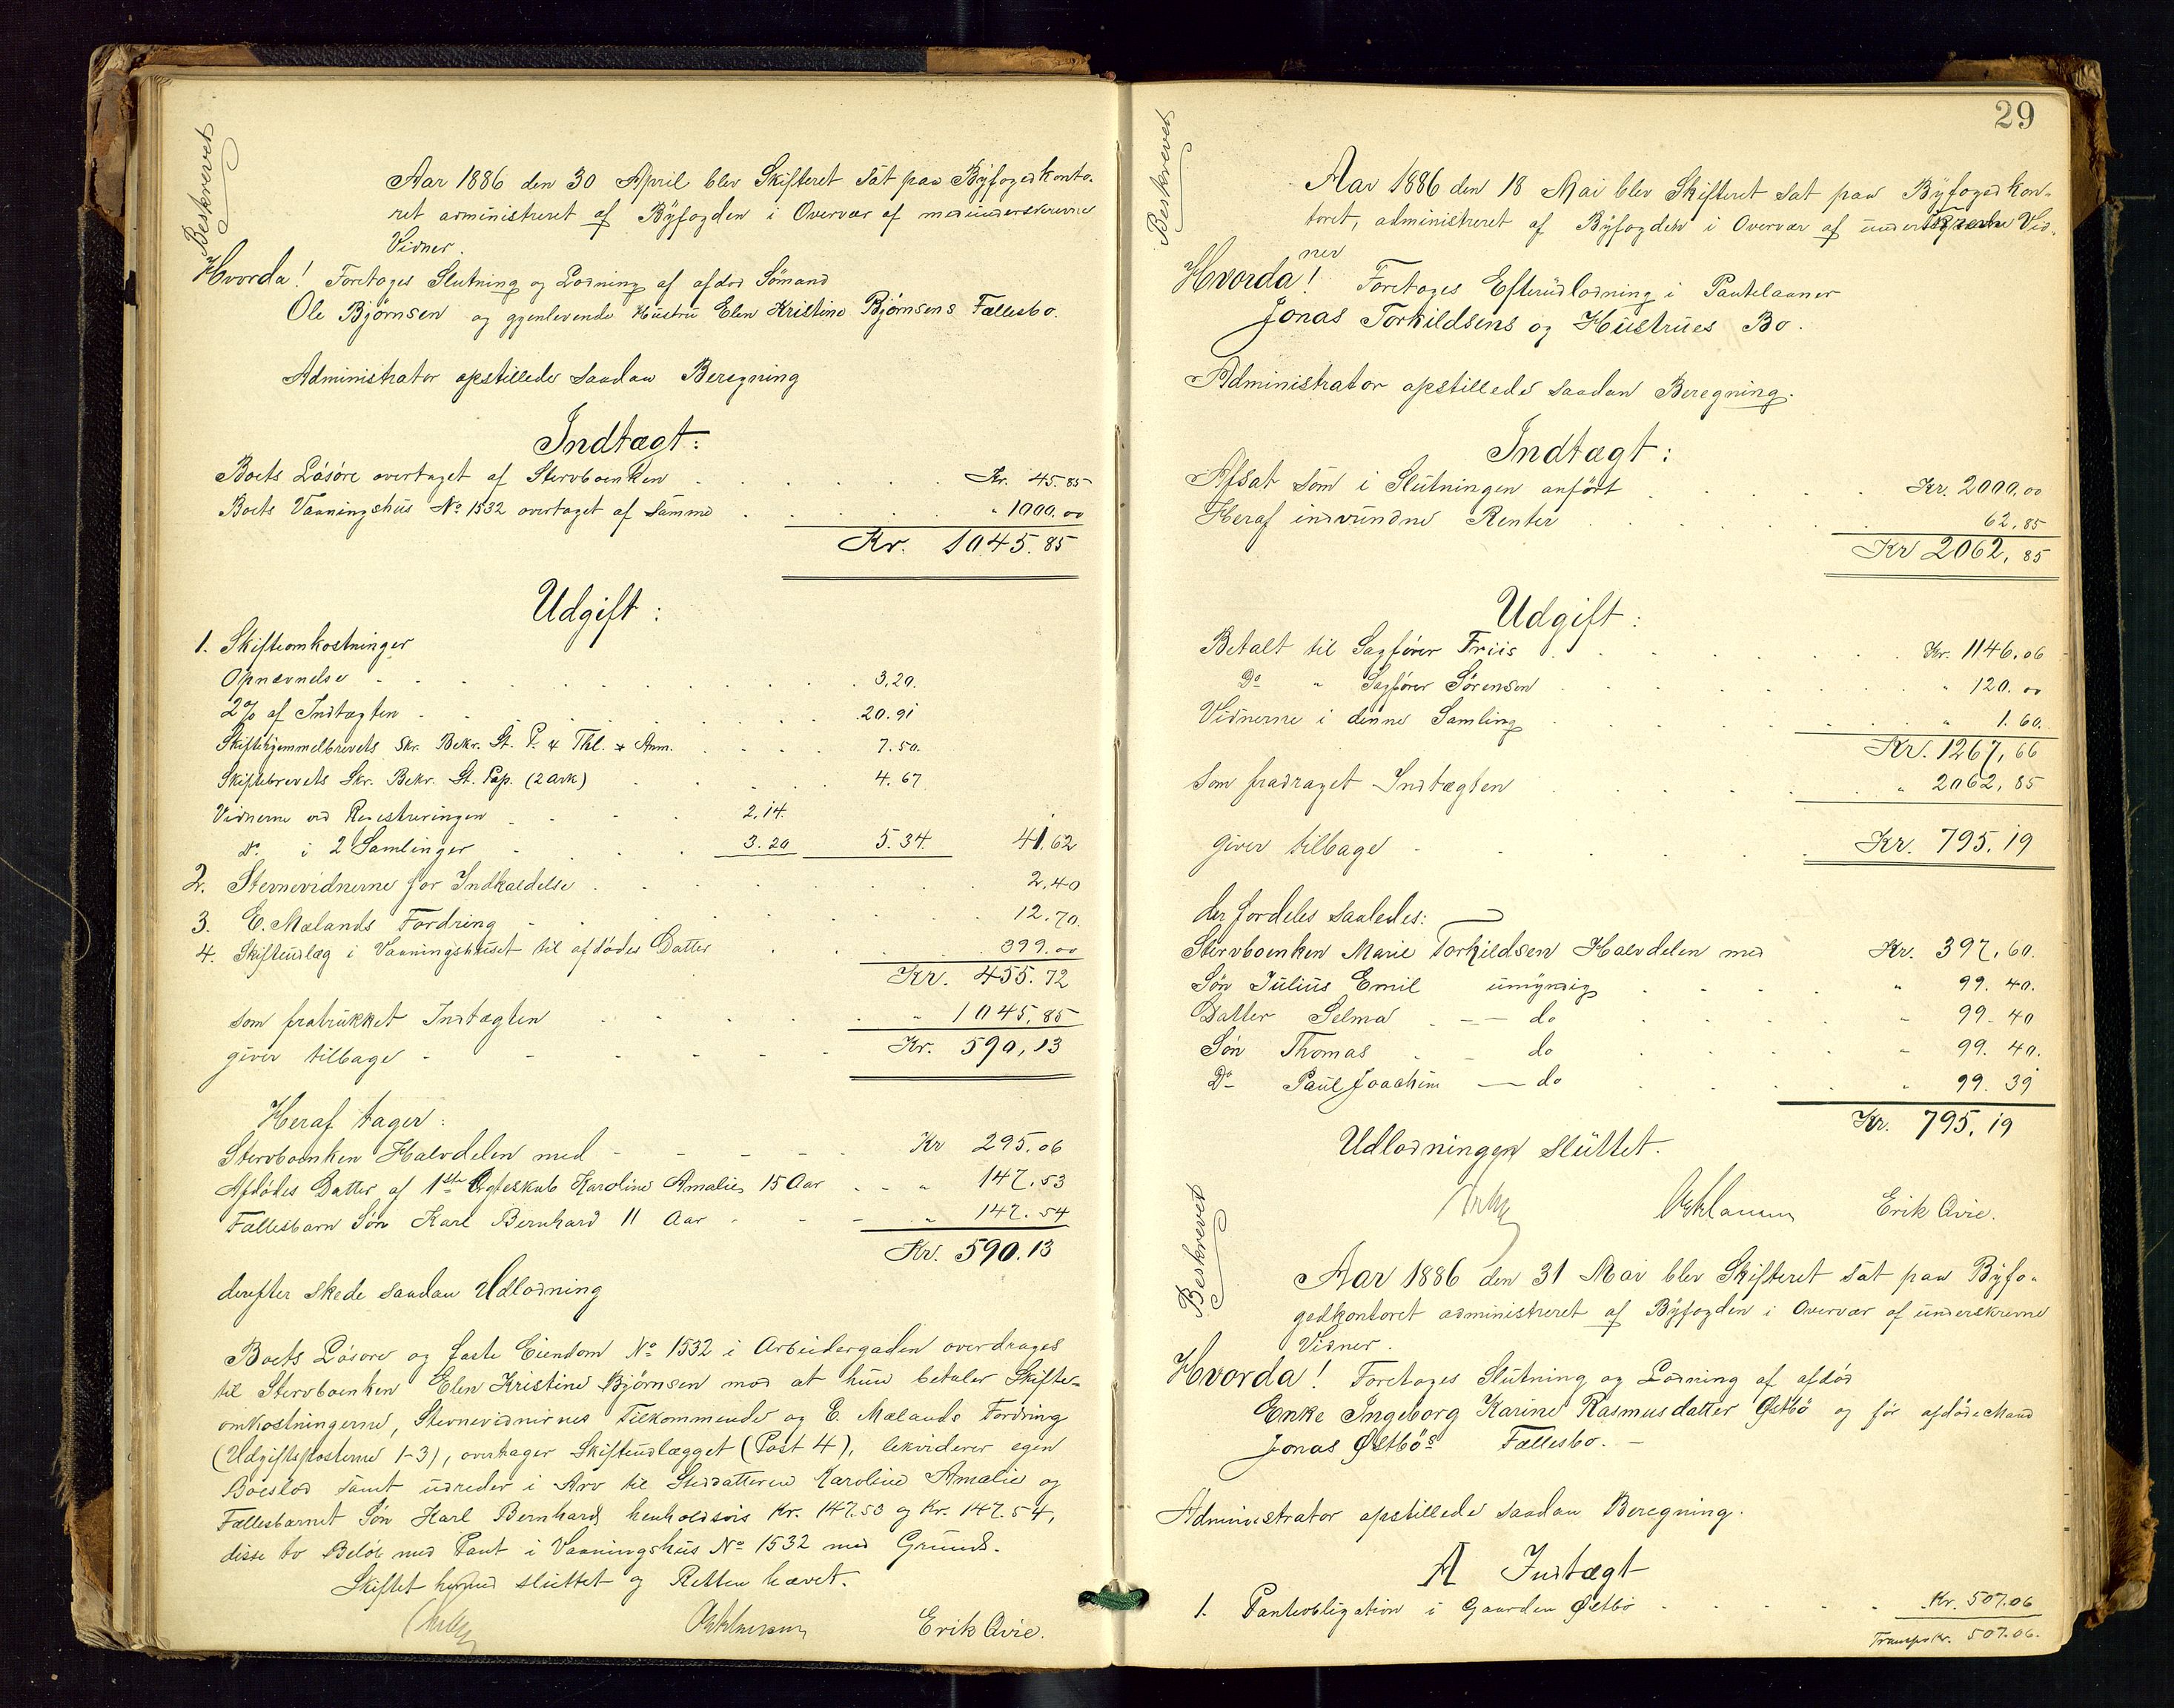 Beskrevet
Aar 1886 den 30 April blev Skifteret sat paa Byfogedkonto-
ret administreret af Byfogden i Overvær af medunderskrevne
Vidner.
Hvorda! Foretoges Slutning og Lodning af afdød Sömand
Ole Bjørnsen og gjenlevende Hustru Elen Kristine Bjørnsens Fællesbo.
Administrator opstillede saadan Beregning
Indtægt:
Boets Lösöre overtaget af Stervboenken Kr. 45.85
Boets Vaaningshus No 1532 overtaget af samme " 1000.00
Kr. 1045.85
Udgift:
1. Skifteomkostninger
Opnævnelse 3.20.
2% af Indtægten 20.91
Skiftehjemmelbrevets Skr. Bekr. St. P. & Thl. & Anm. 7.50.
Skiftebrevets Skr. Bekr. St. Pap. (2 Ark) 4.67
Vidnerne ved Registreringen 2.14.
Do i 2 Samlinger 3.20 5.34. 41.62
2. Stevnevidnerne for Indkaldelse 2.40
3. E. Mælands Fordring 12.70.
4. Skifteudlæg i Vaaningshuset til afdødes Datter 399.00
Kr. 455.72
som fratrukket Indtægten " 1045.85
giver tilbage Kr. 590,13
Heraf tager:
Stervboenken Halvdelen med Kr 295.06
Afdødes Datter af 1ste Ægteskab Karoline Amalie, 15 Aar " 147.53
Fællesbarn Søn Karl Bernhard 11 Aar " 147.54
Kr. 590.13
derefter skede saadan Udlodning
Boets Lösöre og faste Eiendom No 1532 i Arbeidergaden overdrages
til Stervboenken Elen Kristine Bjørnsen mod at hun betaler Skifte-
omkostningerne, Stevnevidnernes Tilkommende og E. Mælands Fordring
(Udgiftsposterne 1-3), overtager Skifteudlægget (Post 4), likviderer egen
Boeslod samt udreder i Arv til Steddatteren Karoline Amalie og
Fællesbarnet Søn Karl Bernhard henholdsvis Kr. 147.53 og Kr. 147.54,
disse to Beløb mod Pant i Vaaningshus No 1532 med Grund.
Skiftet hermed sluttet og Retten hævet.
Erik Qvie.
29
Beskrevet
Aar 1886 den 18 Mai blev Skifteret sat paa Byfogedkon-
toret, administreret af Byfogden i Overvær af underskrevne Vid-
ner
Hvorda! Foretoges Efterudlodning i Pantelaaner
Jonas Torkildsens og Hustrues Bo.
Administrator opstillede saadan Beregning.
Indtægt:
Afsat som i Slutningen anført Kr. 2000.00
Heraf indvundne Renter 62.85
Kr 2062,85
Udgift:
Betalt til Sagfører Friis Kr. 1146.06
Do " Sagfører Sørensen " 120.00
Vidnerne i denne Samling " 1.60.
Kr. 1267,66
som fradraget Indtægten " 2062,85
giver tilbage Kr. 795.19
der fordeles saaledes:
Stervboenken Marie Torkildsen Halvdelen med Kr. 397,60.
Søn Julius Emil umyndig " 99.40.
Datter Selma — do " 99.40
Søn Thomas - do " 99.40.
Do Paul Joachim — do " 99.39
Kr. 795.19
Udlodningen sluttet.
Erik Qvie.
Beskrevet
Aar 1886 den 31 Mai blev Skifteret sat paa Byfo-
gedkontoret administreret af Byfogden i Overvær af underskrevne
Vidner.
Hvorda! Foretoges Slutning og Lodning af afdød
Enke Ingeborg Karine Rasmusdatter Østbö og før afdöde Mand
Jonas Østbös Fællesbo. —
Administrator opstillede saadan Beregning.
A Indtægt
1. Panteobligation i Gaarden Østbö Kr. 507.06
Transp. Kr. 507.06.